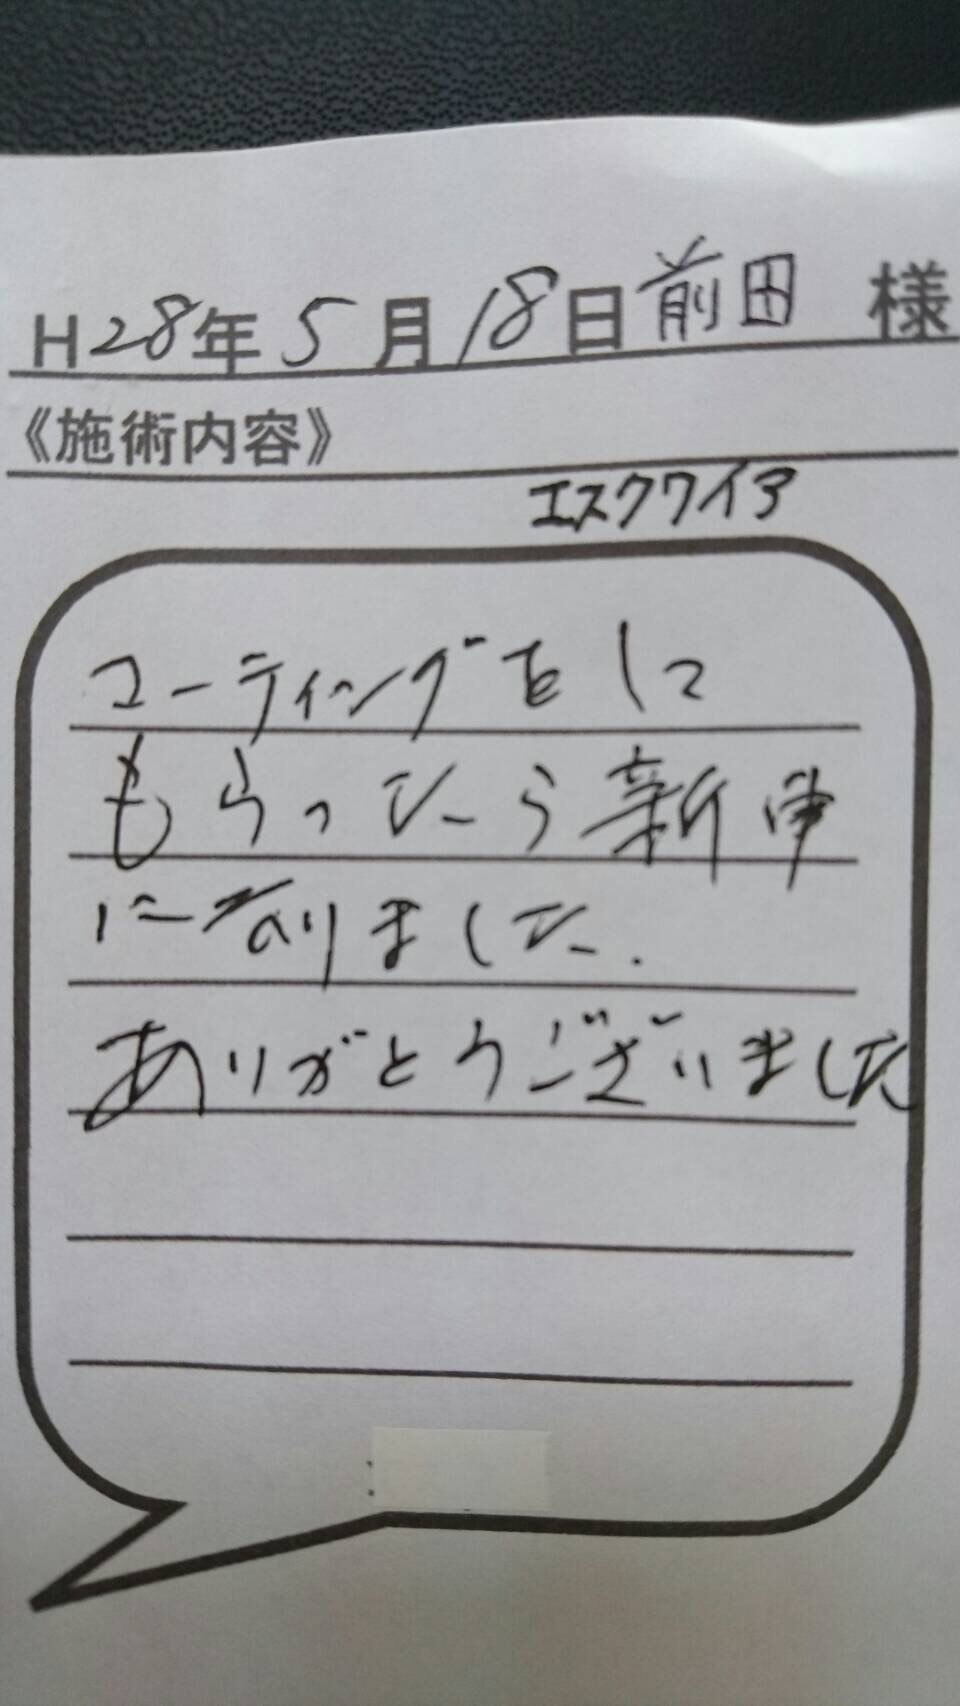 H28年5月18日前田 様
《施術内容》
エスクワイア
コーティングをして
もらったら新車
になりました.
ありがとうございました